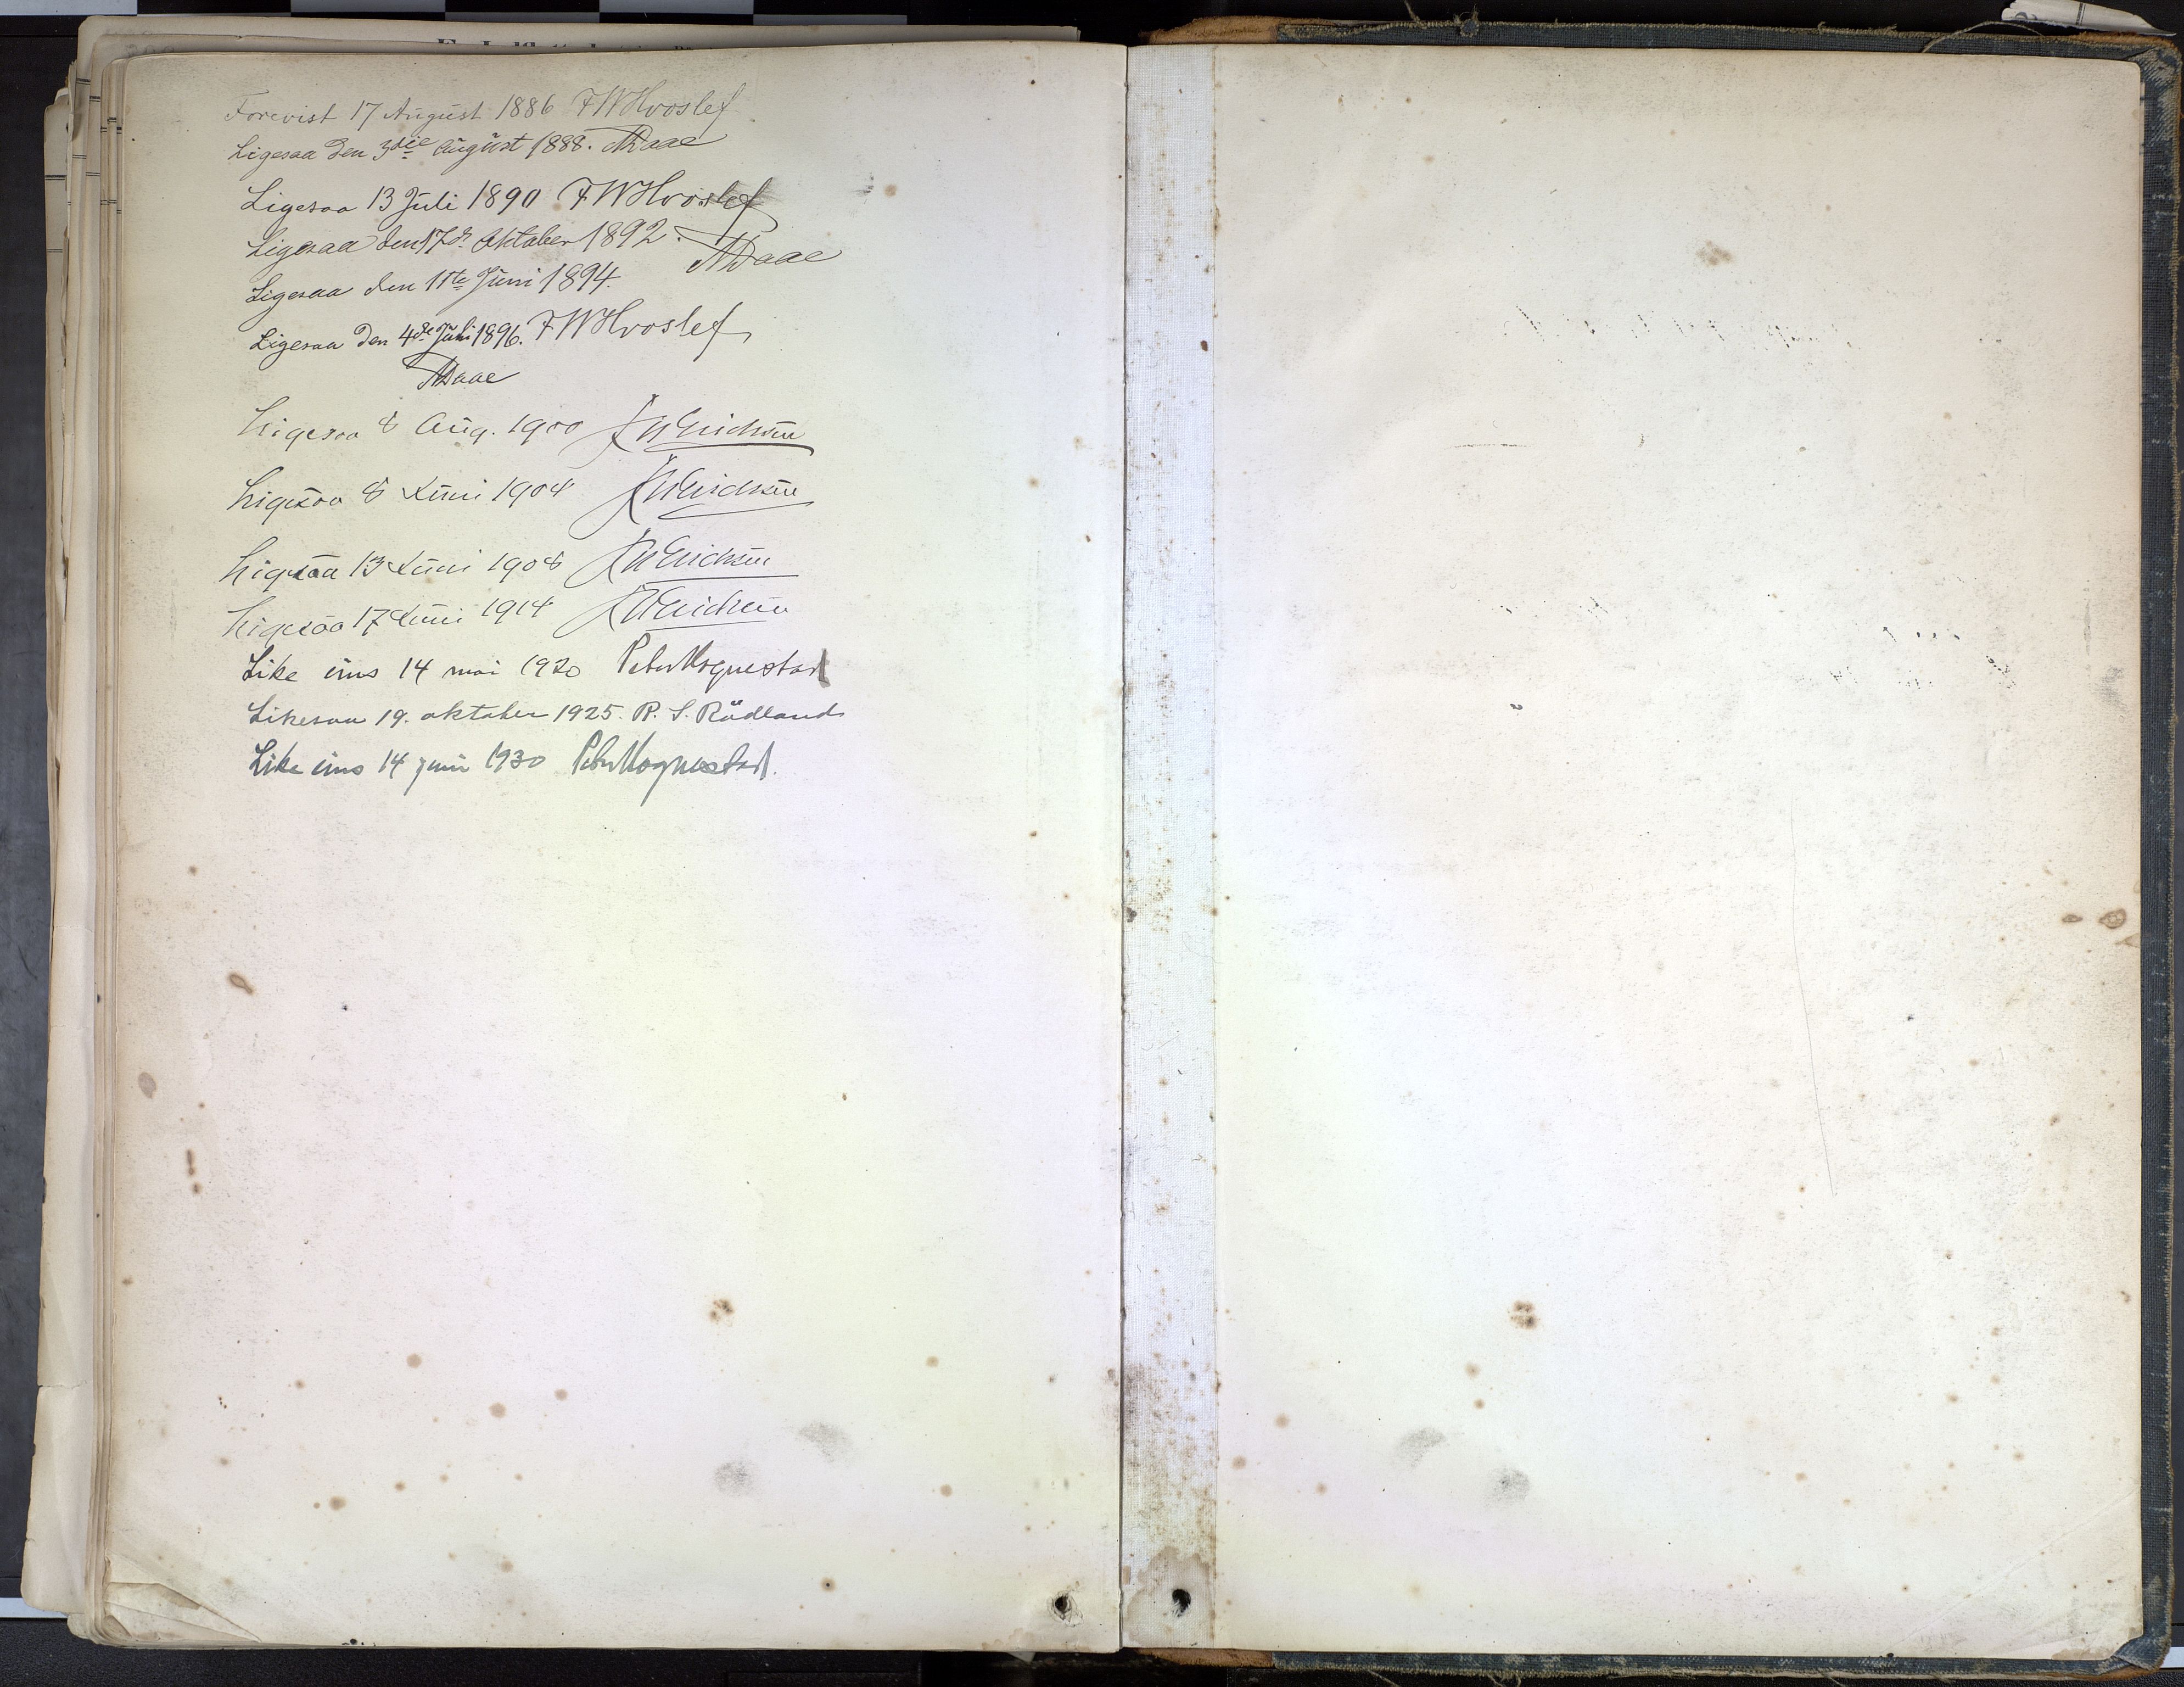 Forevist 17 August 1886 FWHvoslef
Ligesaa den 3die August 1888. ADaae
Ligesaa 13 Juli 1890 FWHvoslef
Ligesaa den 17de Oktober 1892. ADaae
Ligesaa den 11te Juni 1894.
FWHvoslef
Ligesaa den 4de Juli 1896.
ADaae
Ligesaa 8 Aug. 1900 Erichsen
Ligesaa 8 Juni 1904 Erichsen
Ligesaa 13 Juni 1908 Erichsen
Ligesaa 17 Juni 1914 Erichsen
Like eins 14 mai 1920 Peter Hognestad
Likesaa 19. oktober 1925. P. S. Rödland
Like eins 14 juni 1930 Peter Hognestad.